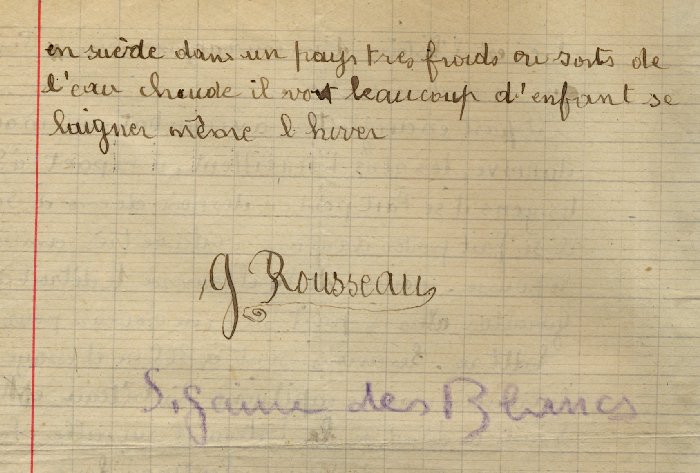 en suède dans un pays tres froids ou sorts de
l'eau chaude il vont beaucoup d'enfant se
baigner même l hiver
G Rousseau
des Blancs